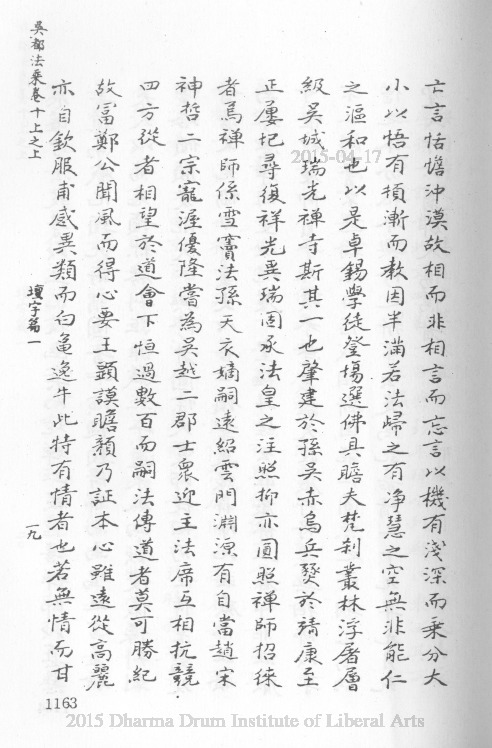 亡言恬憺沖漠故相而非相言而忘言以機有淺深而乗分大
小以悟有頓漸而教因半滿若法歸之有净慧之空無非能仁
之漚和也以是卓錫學徒登場選佛具瞻夫梵刹叢林浮屠層
級吴城瑞光禅寺斯其一也肇建於孫吴赤烏兵燹於靖康至
正屢圮尋復祥光異瑞固承法皇之注照抑亦圓照禅師招徠
者焉禅師係雪竇法孫天衣嫡嗣遠紹雲門淵源有自當趙宋
神哲二宗寵渥優隆嘗為吴越二郡士衆迎主法席互相抗競
四方從者相望於道會下恒過數百而嗣法傳道者莫可勝紀
故富鄭公聞風而得心要王顗謨瞻顔乃証本心雖遠從高麗
亦自欽服甫感異類而白龜逸牛此特有情者也若無情而甘
吴都法乗卷十上之上
壇宇篇一
一九
1163
2015-04-17
2015 Dharma Drum Institute of Liberal Arts